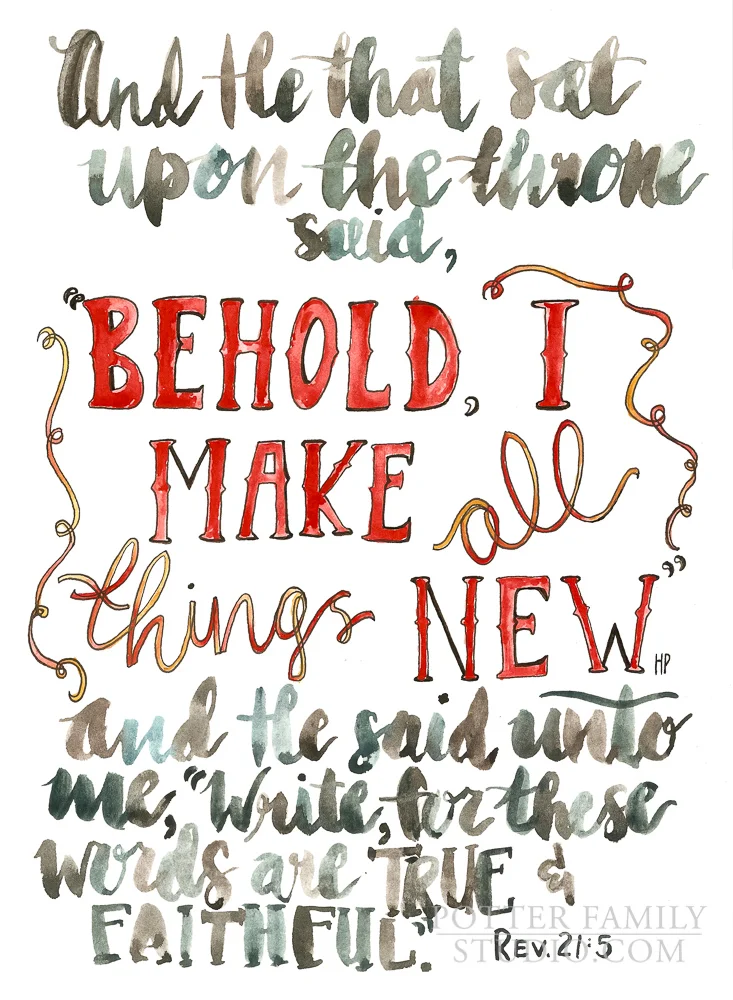 And He that sat
upon the throne
said,
“BEHOLD, I
MAKE all
things NEW”
HP
and He said unto
me, “Write, for these
words are TRUE &
FAITHFUL.”
POTTER FAMILY
STUDIO.COM
REV. 21:5